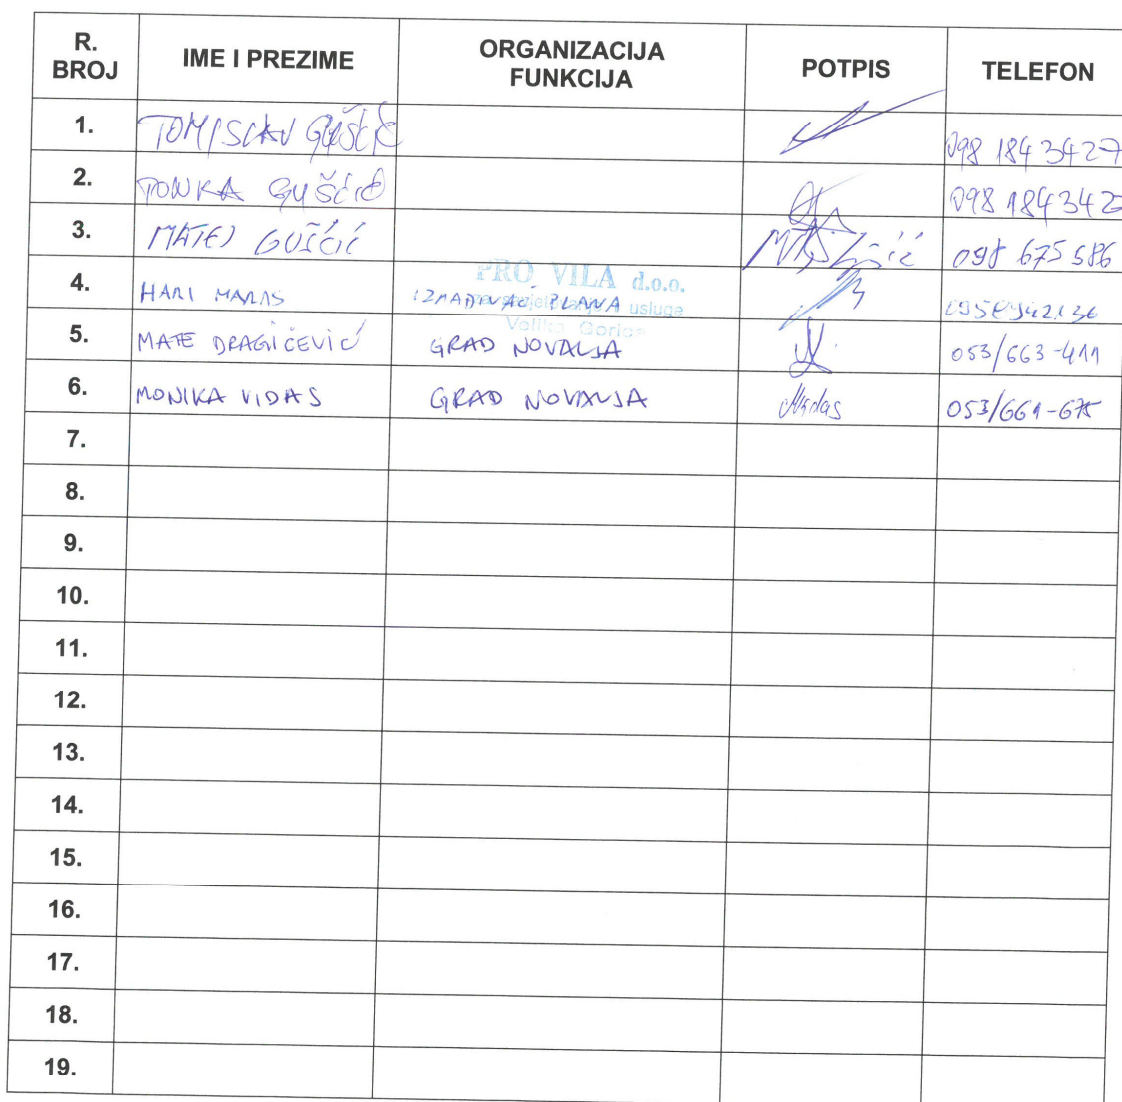 R. BROJ IME I PREZIME ORGANIZACIJA FUNKCIJA POTPIS TELEFON
1. TOMISLAV GUŠČIĆ 098 184 3427
2. TONKA GUŠČIĆ 098 184 342
3. MATEJ GUŠČIĆ 098 675 586
PRO VILA d.o.o.
4. HARI MARAS IZRAĐIVAČ PLANA usluge
Velika Gorica
5. MATE DRAGIČEVIĆ GRAD NOVALJA 053/663-411
6. MONIKA VIDAS GRAD NOVALJA MVidas 053/661-675
7.
8.
9.
10.
11.
12.
13.
14.
15.
16.
17.
18.
19.